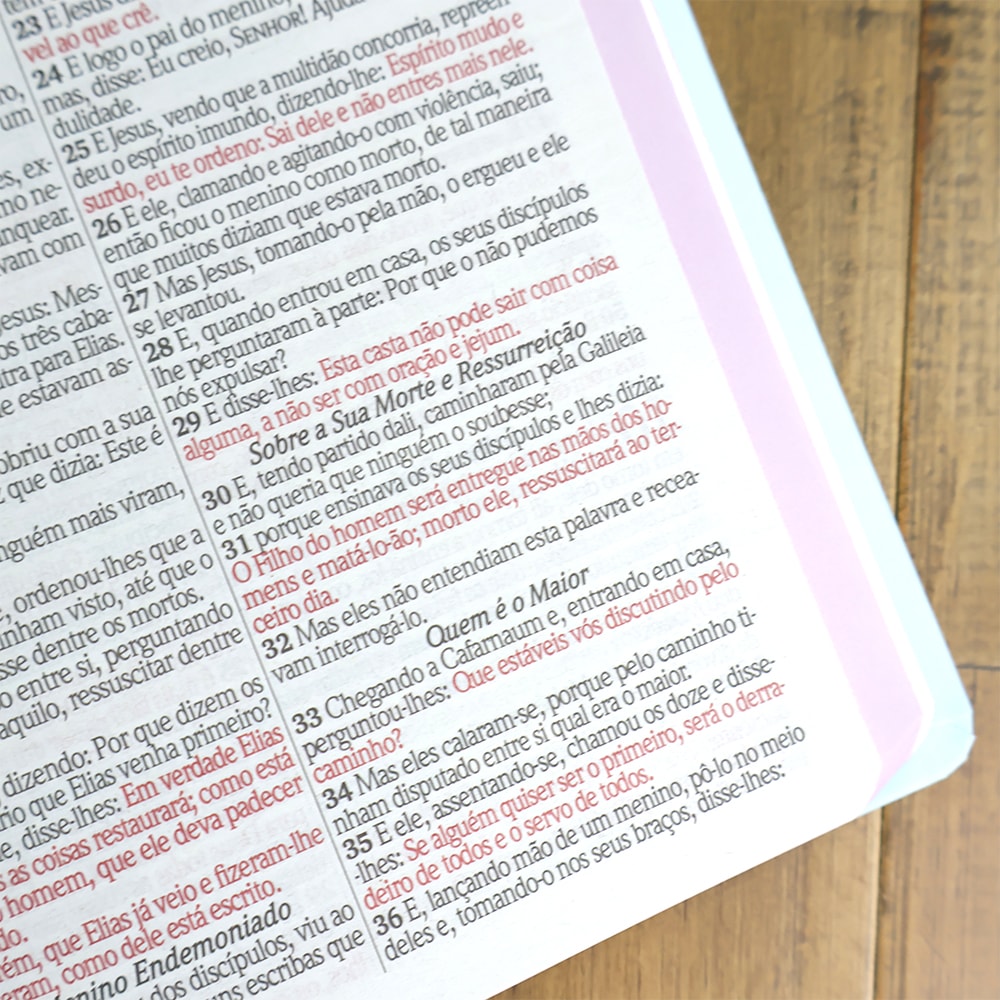 ro,
um
es, ex-
mo ne-
nquear.
vam com
Jesus: Mes-
os três caba-
utra para Elias.
e estavam as-
obriu com a sua
que dizia: Este é
nguém mais viram,
, ordenou-lhes que a
inham visto, até que o
sse dentre os mortos.
o entre si, perguntando
aquilo, ressuscitar dentre
dizendo: Por que dizem os
rio que Elias venha primeiro?
e, disse-lhes: Em verdade Elias
s as coisas restaurará; como está
o homem, que ele deva padecer
do.
rém, que Elias já veio e fizeram-lhe
eram, como dele está escrito.
enino Endemoniado
dos discípulos, viu ao
ns escribas que
23 E Jesus
vel ao que crê.
24 E logo o pai do menino,
mas, disse: Eu creio, SENHOR! Ajuda
dulidade.
25 E Jesus, vendo que a multidão concorria, repreen
deu o espírito imundo, dizendo-lhe: Espírito mudo e
surdo, eu te ordeno: Sai dele e não entres mais nele.
26 E ele, clamando e agitando-o com violência, saiu;
então ficou o menino como morto, de tal maneira
que muitos diziam que estava morto.
27 Mas Jesus, tomando-o pela mão, o ergueu e ele
se levantou.
28 E, quando entrou em casa, os seus discípulos
lhe perguntaram à parte: Por que o não pudemos
nós expulsar?
29 E disse-lhes: Esta casta não pode sair com coisa
alguma, a não ser com oração e jejum.
Sobre a Sua Morte e Ressurreição
30 E, tendo partido dali, caminharam pela Galileia
e não queria que ninguém o soubesse;
31 porque ensinava os seus discípulos e lhes dizia:
O Filho do homem será entregue nas mãos dos ho-
mens e matá-lo-ão; morto ele, ressuscitará ao ter-
ceiro dia.
32 Mas eles não entendiam esta palavra e recea-
vam interrogá-lo.
Quem é o Maior
33 Chegando a Cafarnaum e, entrando em casa,
perguntou-lhes: Que estáveis vós discutindo pelo
caminho?
34 Mas eles calaram-se, porque pelo caminho ti-
nham disputado entre si qual era o maior.
35 E ele, assentando-se, chamou os doze e disse-
-lhes: Se alguém quiser ser o primeiro, será o derra-
deiro de todos e o servo de todos.
36 E, lançando mão de um menino, pô-lo no meio
deles e, tomando-o nos seus braços, disse-lhes: